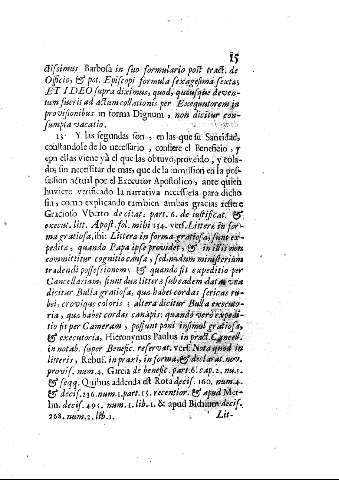 15
ctissimus Barbosa in suo formulario post tract. de
Officio, & pot. Episcopi formula sexagesima sexta;
ET IDEO supra diximus, quod, quousque deven-
tum fuerit ad actum collationis per Exequutorem in
provisionibus in forma Dignum, non dicitur con-
sumpta vacatio.
13 Y las segundas son, en las que su Santidad,
constandole de lo necessario, confiere el Beneficio, y
con ellas viene yà el que las obtuvo, proveido, y cola-
do; sin necessitar de mas, que de la inmission en la pos-
session actual por el Executor Apostolico, ante quien
huviere verificado la narrativa necessaria para dicho
fin, como explicando tambien ambas gracias refiere
Gracioso Uberto de citat: part. 6. de iustificat. &
execut. litt. Apost. fol. mihi 134. vers. Littere in for-
ma gratiosa, ibi: Littera in forma gratiosa, sunt ex-
peditæ, quando Papa ipse providet, & in illis non
committitur cognitio causæ, sed nudum ministerium
tradendi possessionem, & quando fit expeditio per
Cancellariam, fiunt duæ litteræ sub eadem data, una
dicitur Bulla gratiosa, quæ habet cordas sericas ru-
bei, croviquæ coloris: altera dicitur Bulla executo-
ria, quæ habet cordas canapis: quando verò expedi-
tio fit per Cameram, possunt poni insimul gratiosa,
& executoria, Hieronymus Paulus in pract. Cancell.
in notab. super Benefic. reservat. vers. Nota quod in
litteris, Rebuf. in praxi, in forma, & declarat. nov.
provis. num. 4. Garcia de benefic. part. 6. cap. 2. nu. 1.
& seqq. Quibus addenda est Rota decis. 160. num. 4.
& decis. 236. num. 1. part. 15. recentior. & apud Mer-
lin. decis. 495. num. 1. lib. 1. & apud Bichium decis.
268. num. 2. lib. 1.
Lit-